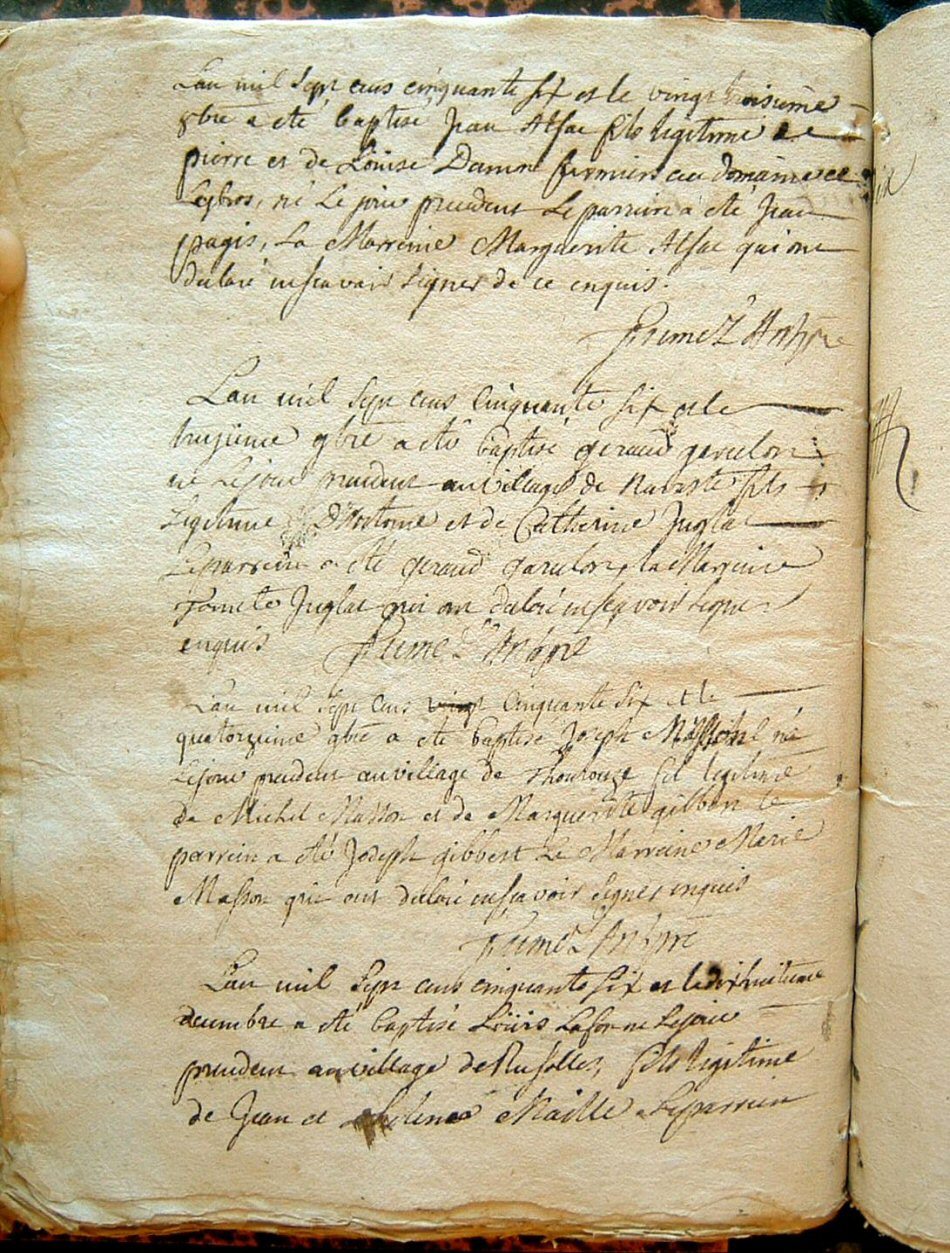 Lan mil sept cens cinquante six et le vingt troisieme
8bre a eté baptisé Jean Alsac fils legitime de
pierre et de Loüise Damon fermiers au domaine de
Leybros, né Le jour precedent Le parrein a eté Jean
pagis, La Marreine Marguerite Alsac qui ont
declaré ne scavoir signer de ce enquis.
Lan mil sept cens Cinquante six et le
huitieme 9bre a eté baptisé geraud garulon
né Le jour precedent au village de fils
Legitime D'Antoine et de Catherine Juglar
Le parrein a eté geraud garulon, la Marreine
Toinete Juglar qui ont declaré ne scavoir signer
enquis
Lan mil sept cens vingt Cinquante six et le
quatorzieme 9bre a eté baptisé Joseph Masson né
Le jour precedent au village de fil legitime
de Michel Masson et de Marguerite gibbert le
parrein a eté Joseph gibbert La Marreine Marie
Masson qui ont declaré ne scavoir signer enquis
Lan mil sept cens cinquante six et le dix huitieme
decembre a eté baptisé Loüis Lafon né Le jour
precedent au village de Rusolles, fils legitime
de Jean et Maille Le parrein